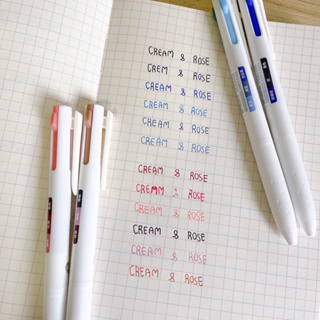 CREAM & ROSE
CREM & ROSE
CREAM & ROSE
CREAM & ROSE
CREAM & ROSE
CREAM & ROSE
CREAM & ROSE
CREMM & ROSE
CREAM & ROSE
CREAM & ROSE
CREAM & ROSE
CREAM & ROSE